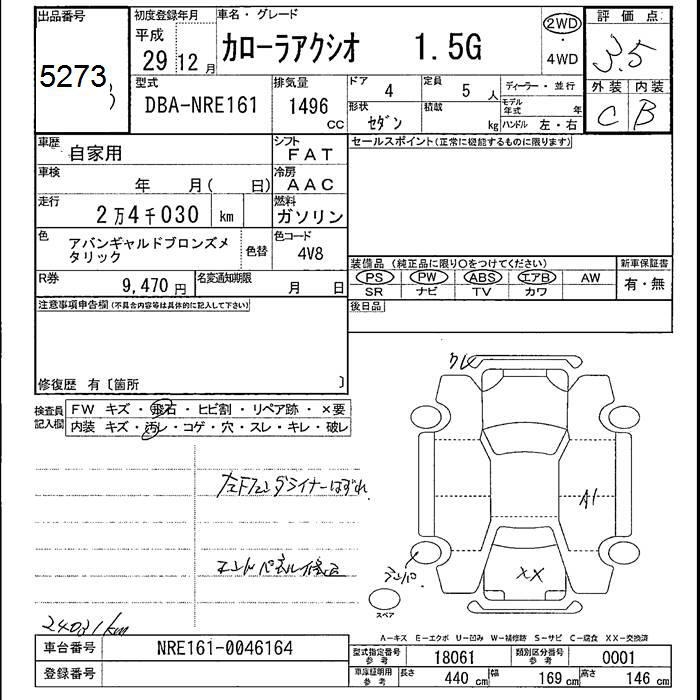 出品番号
5273
初度登録年月
平成
29 12 月
車名・グレード
カローラアクシオ 1.5G
2WD
・
4WD
評価点
3.5
外装 内装
C B
型式
DBA-NRE161
排気量
1496
CC
ドア
4
定員
5 人
ディーラー・並行
形状
セダン
積載
kg
モデル年式
年
ハンドル 左・右
車歴
自家用
シフト
FAT
車検
年 月( 日)
冷房
AAC
走行
2万4千030 km
燃料
ガソリン
色
アバンギャルドブロンズメ
タリック
色替
色コード
4V8
R券
9,470 円
名変通知期限
月 日
セールスポイント(正常に機能するものに限ります)
装備品 (純正品に限り○をつけてください)
PS PW ABS エアB AW
SR ナビ TV カワ
新車保証書
有・無
後日品
注意事項申告欄(不具合内容等は具体的に記入して下さい)
修復歴 有〔箇所 〕
検査員
記入欄
FW キズ・飛石・ヒビ割・リペア跡・×要
内装 キズ・汚レ・コゲ・穴・スレ・キレ・破レ
ワレ
A1
XX
スペア
24031km
A-キズ E-エクボ U-凹み W-補修跡 S-サビ C-腐食 XX-交換済
車台番号
NRE161-0046164
登録番号
型式指定番号
参考
18061
類別区分番号
参考
0001
車庫証明用
参考
長さ
440 cm
幅
169 cm
高さ
146 cm